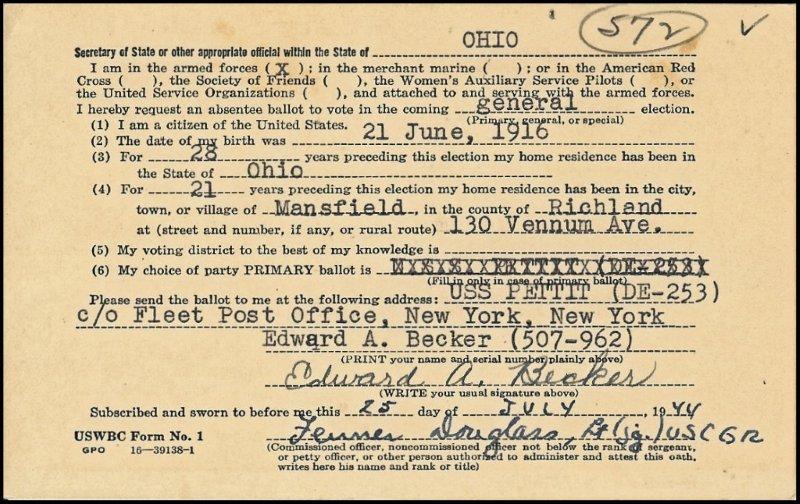 572 ✓
Secretary of State or other appropriate official within the State of OHIO
I am in the armed forces (X); in the merchant marine ( ); or in the American Red
Cross ( ), the Society of Friends ( ), the Women's Auxiliary Service Pilots ( ), or
the United Service Organizations ( ), and attached to and serving with the armed forces.
I hereby request an absentee ballot to vote in the coming general election.
(Primary, general, or special)
(1) I am a citizen of the United States.
(2) The date of my birth was 21 June, 1916
(3) For 28 years preceding this election my home residence has been in
the State of Ohio
(4) For 21 years preceding this election my home residence has been in the city,
town, or village of Mansfield, in the county of Richland
at (street and number, if any, or rural route) 130 Vennum Ave.
(5) My voting district to the best of my knowledge is
(6) My choice of party PRIMARY ballot is
(Fill in only in case of primary ballot)
Please send the ballot to me at the following address: USS PETTIT (DE-253)
c/o Fleet Post Office, New York, New York
Edward A. Becker (507-962)
(PRINT your name and serial number plainly above)
Edward A. Becker
(WRITE your usual signature above)
Subscribed and sworn to before me this 25 day of JULY, 1944
Fenner Douglass, Lt (jg.) USCGR
USWBC Form No. 1
GPO 16—39138-1
(Commissioned officer, noncommissioned officer not below the rank of sergeant,
or petty officer, or other person authorized to administer and attest this oath,
writes here his name and rank or title)